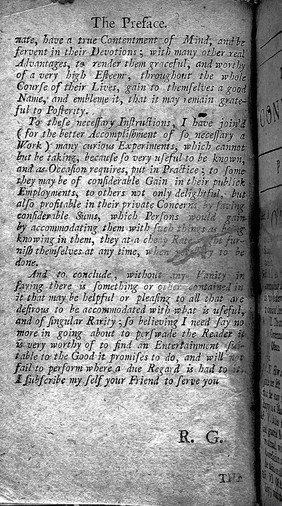 The Preface.
nate, have a true Contentment of Mind, and be
fervent in their Devotions; with many other real
Advantages, to render them graceful, and worthy
of a very high Esteem, throughout the whole
Course of their Lives, gain to themselves a good
Name, and embleme it, that it may remain grate-
ful to Posterity.
To these necessary Instructions, I have join'd
(for the better Accomplishment of so necessary a
Work) many curious Experiments, which cannot
but be taking, because so very useful to be known,
and as Occasion requires, put in Practice; to some
they may be of considerable Gain in their publick
Employments, to others not only delightful, but
also profitable in their private Concerns by saving
considerable Sums, which Persons would gain
by accommodating them with such things as being
knowing in them, they at a cheap Rate might fur-
nish themselves at any time, when to be
done.
And to conclude, without any Vanity in
saying there is something or other contained in
it that may be helpful or pleasing to all that are
desirous to be accommodated with what is useful,
and of singular Rarity; so believing I need say no
more in going about to perswade the Reader it
is very worthy of to find an Entertainment sui-
table to the Good it promises to do, and will not
fail to perform where a due Regard is had to it.
I subscribe my self your Friend to serve you
R. G.
THE